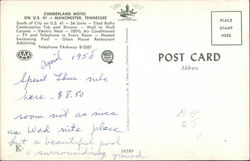 CUMBERLAND MOTEL
ON U.S. 41 - MANCHESTER, TENNESSEE
South of City on U.S. 41 - 54 Units - Tiled Baths
Combination Tub and Shower - Wall to Wall
Carpets - Electric Heat - 100% Air Conditioned
TV and Telephone in Every Room - Heated
Swimming Pool - Glass House Restaurant
Adjoining
Telephone PArkway 8-3561
April
Spent Thur. nite
here - $7.80
room not as nice
as Wed nite place
but a beautiful pool
& surrounding
POST CARD
Address
PLACE
STAMP
HERE